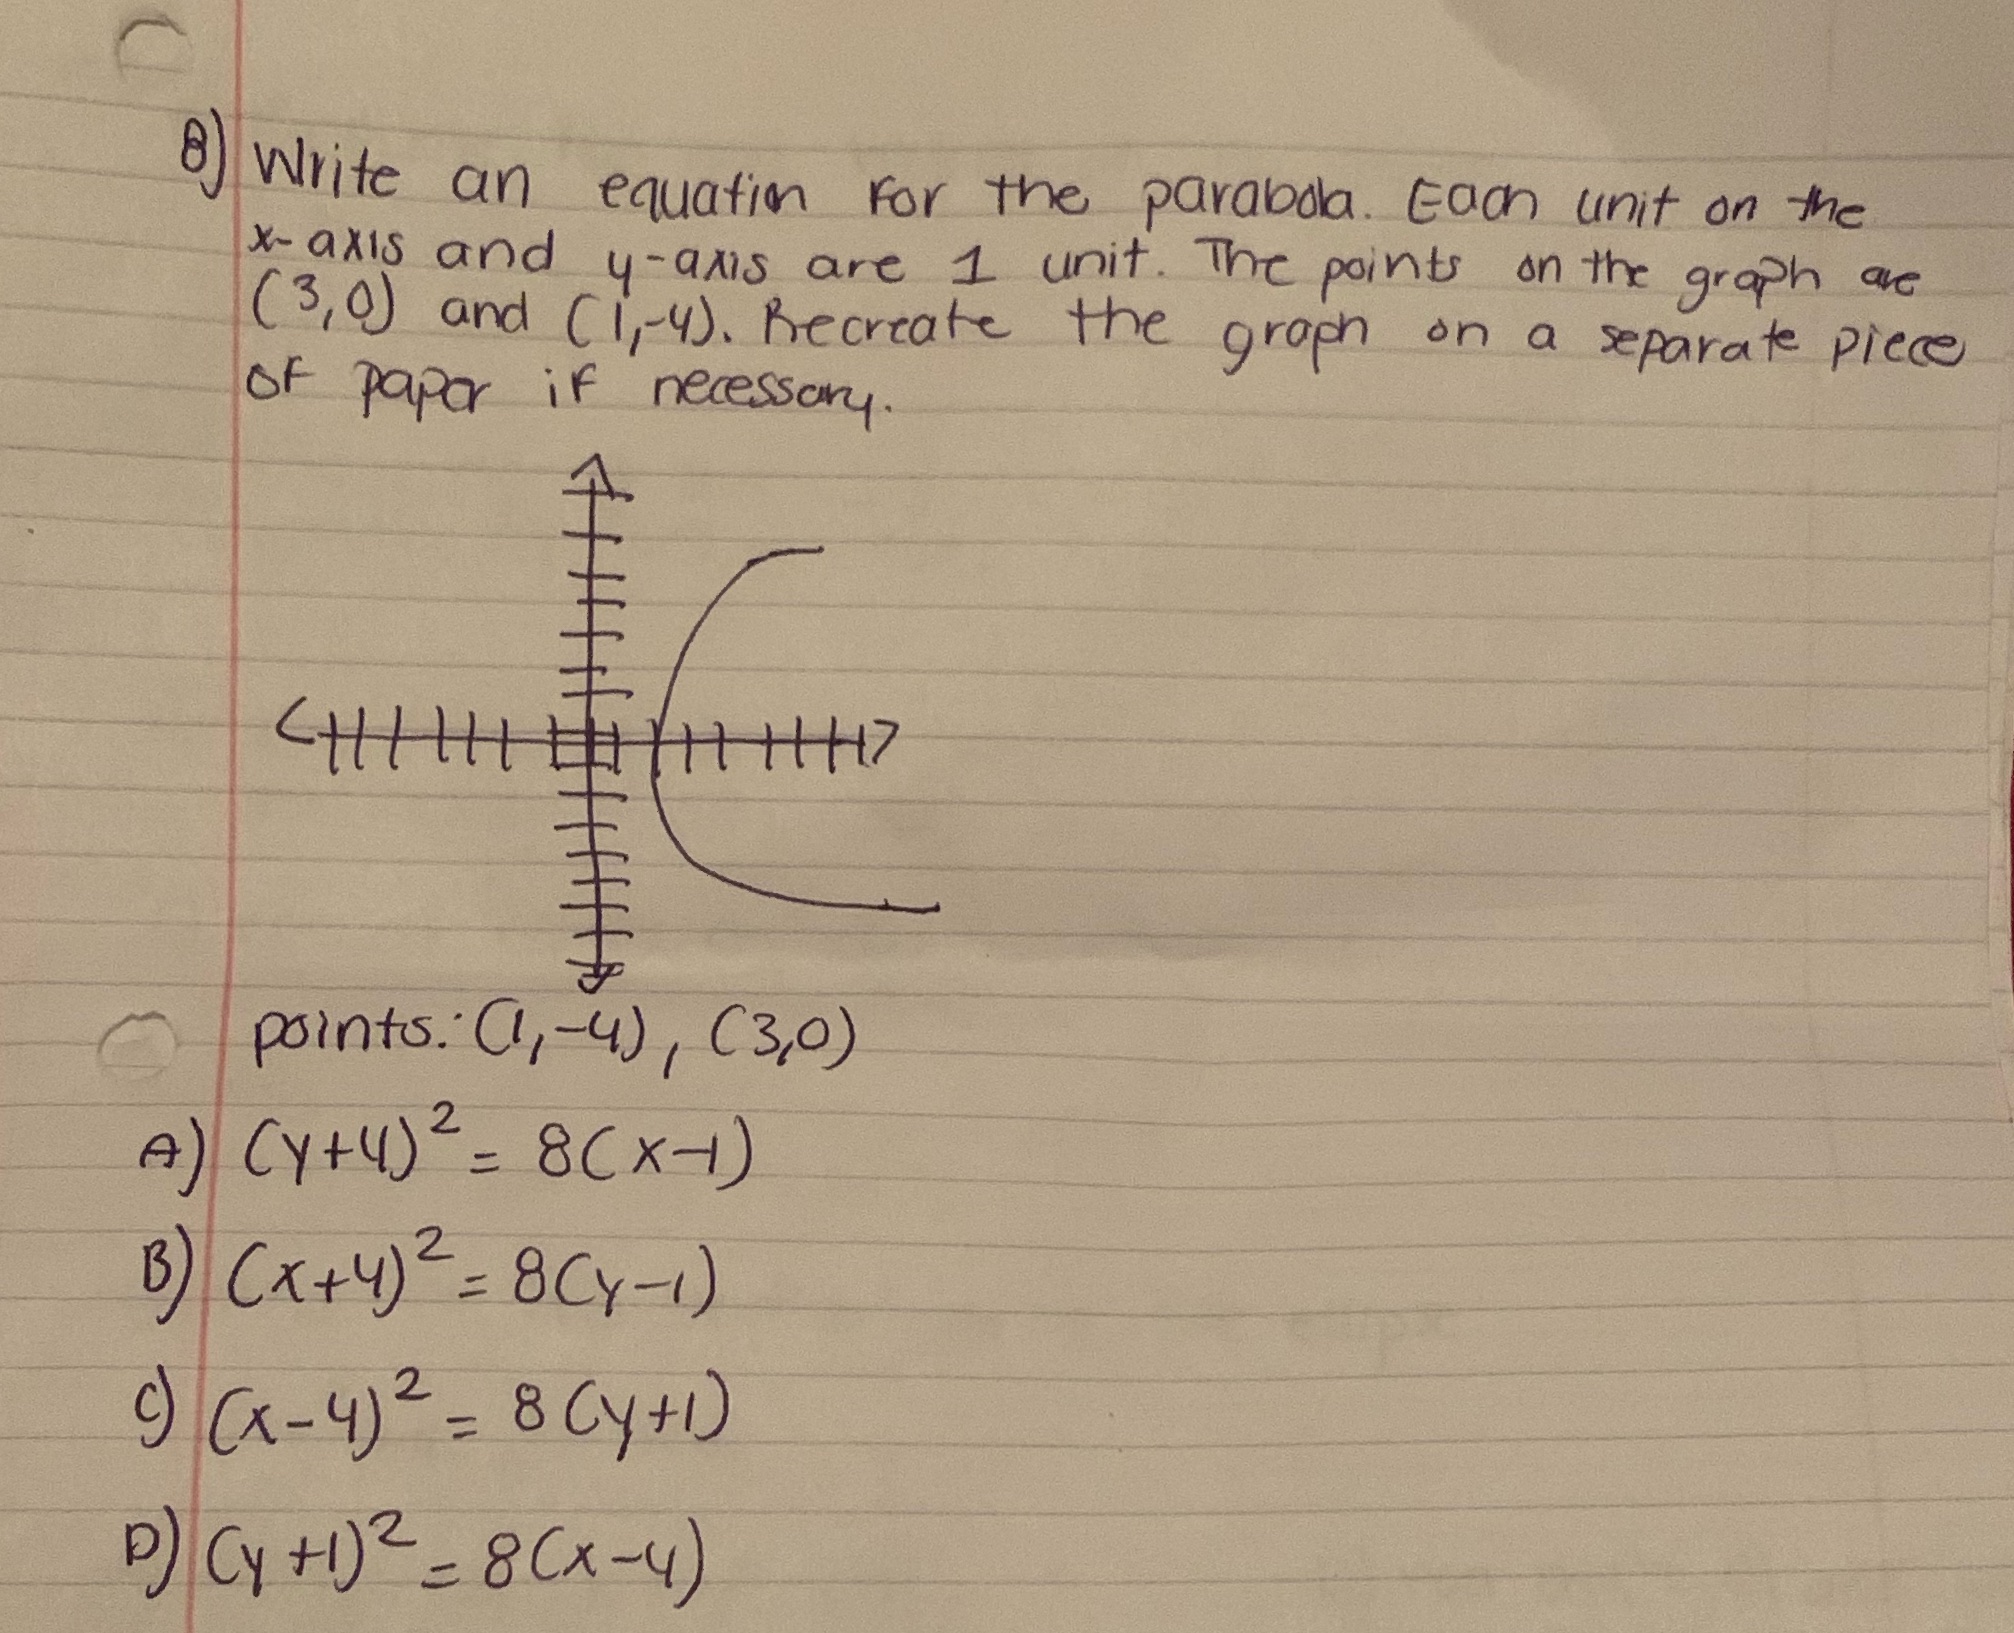 8) Write an equation for the parabola. Each unit on the
x-axis and y-axis are 1 unit. The points on the graph are
(3,0) and (1,-4). Recreate the graph on a separate piece
of paper if necessary.
points: (1,-4), (3,0)
A) (y+4)² = 8(x-1)
B) (x+4)² = 8(y-1)
C) (x-4)² = 8(y+1)
D) (y+1)² = 8(x-4)